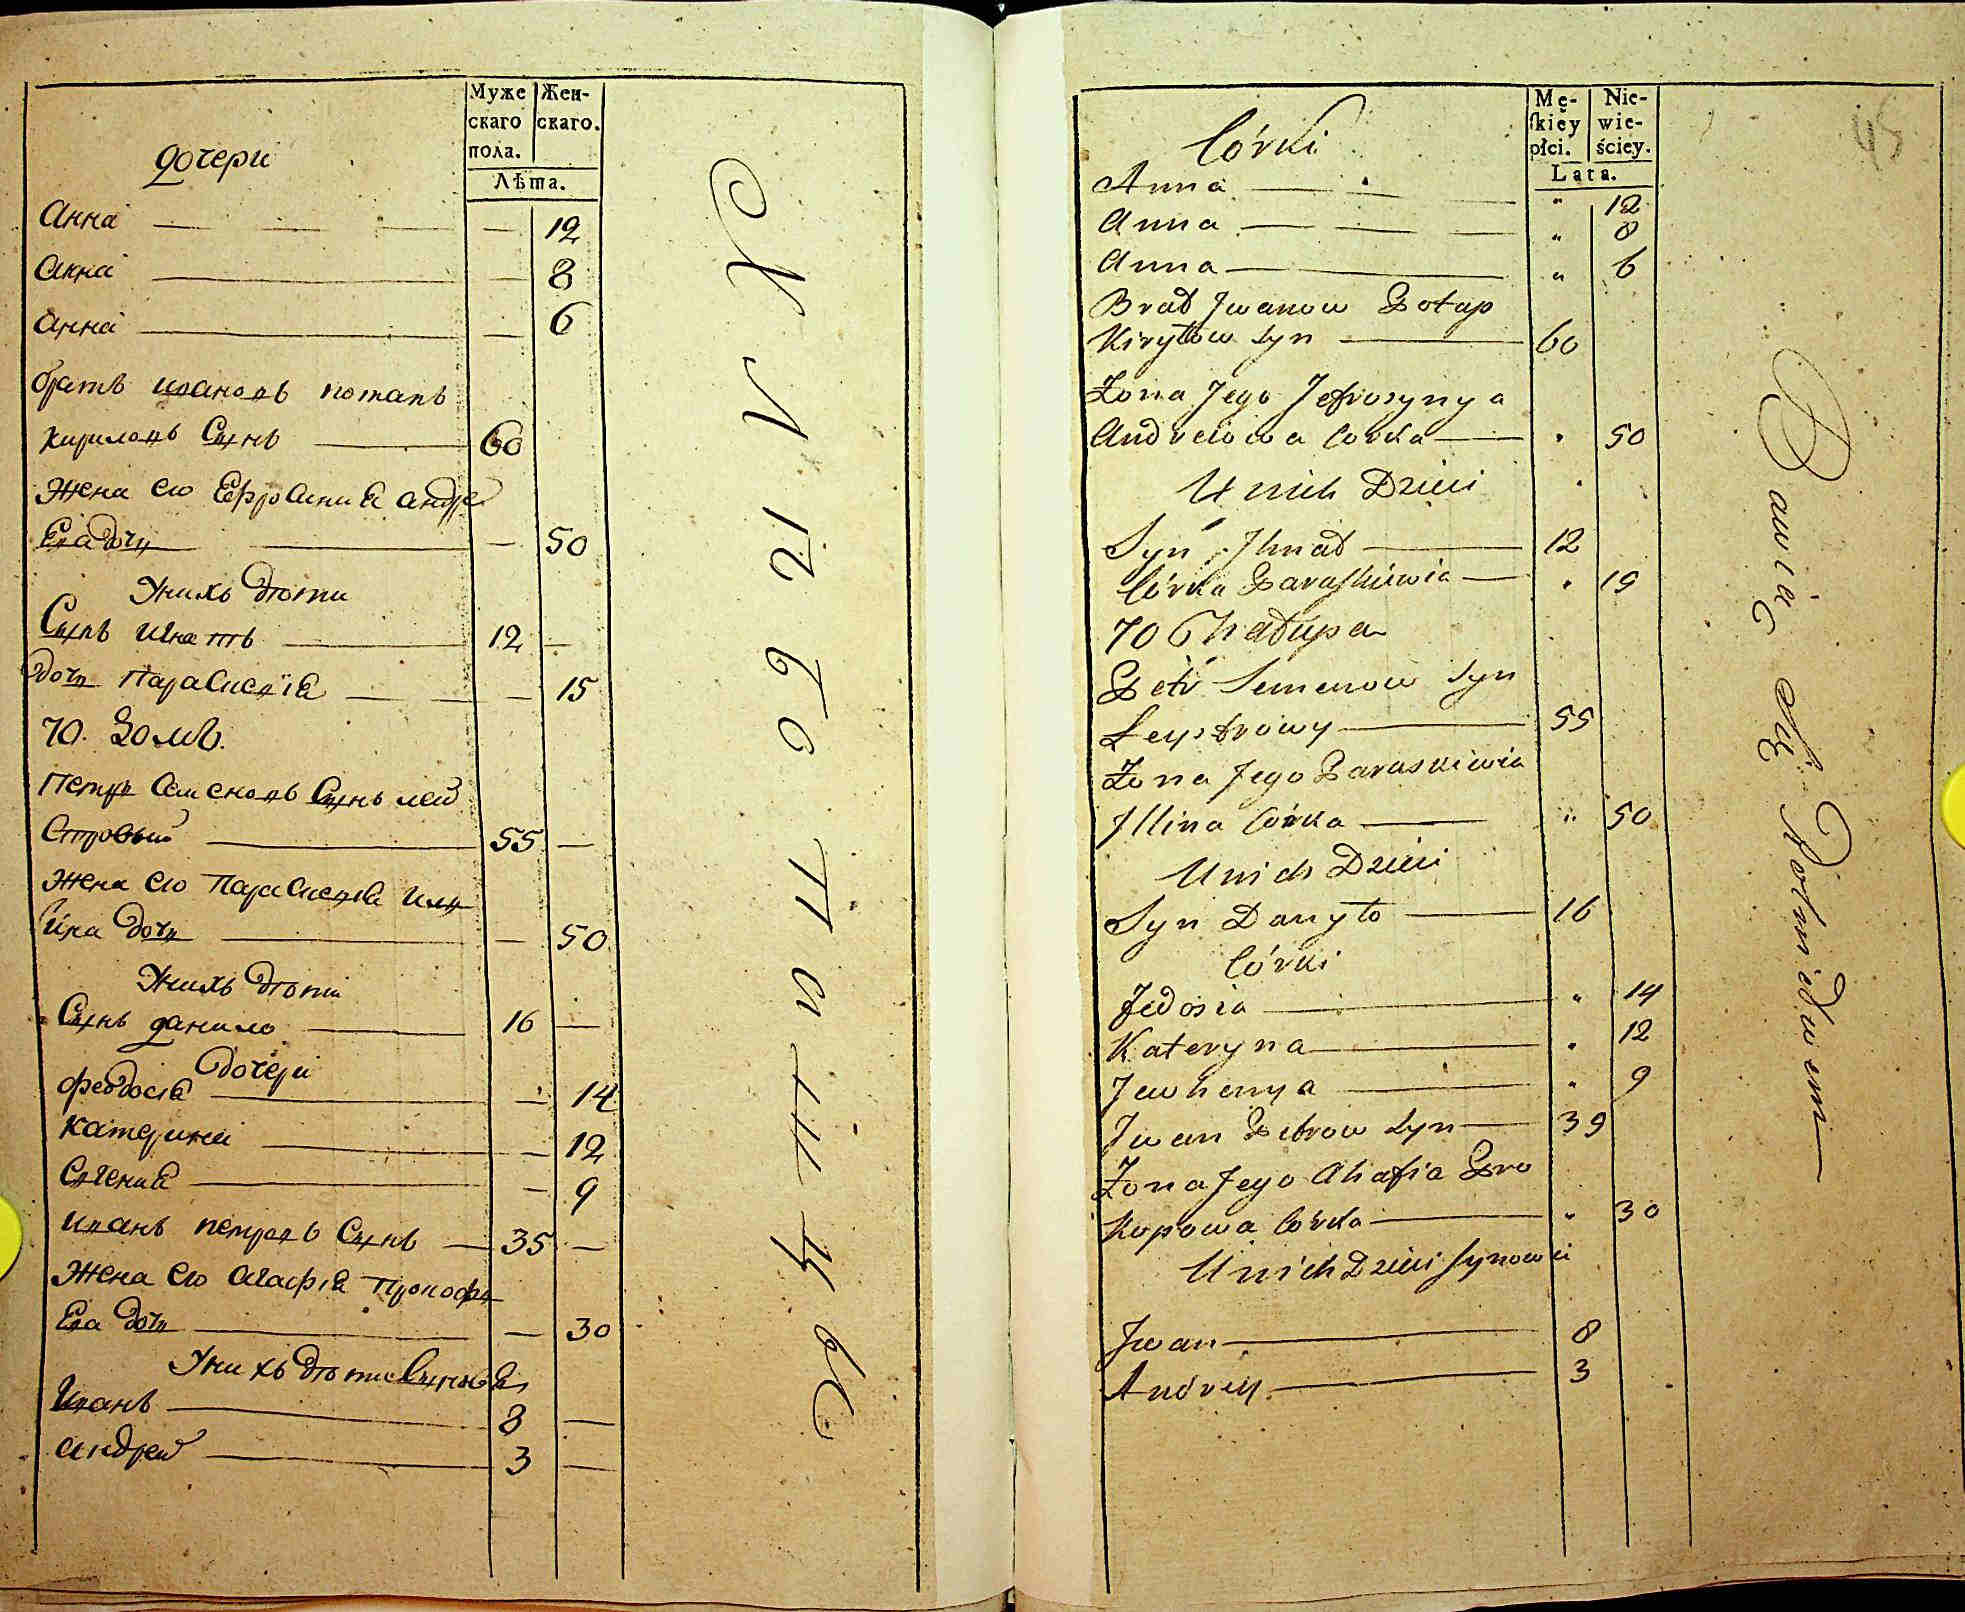 Муже
скаго
пола.
Жен-
скаго.
Лѣта.
дочери
Анна 12
Анна 8
Анна 6
братъ ивановъ потапъ
кириловъ Сынъ 60
Жена его Ефросиния андре
Ева дочь 50
У нихъ дѣти
Сынъ игнатъ 12
дочь Парасковiя 15
70. Домъ.
Петръ Семеновъ Сынъ лей
Стровый 55
Жена его Парасковiя или
ина дочь 50
У нихъ дѣти
Сынъ данило 16
дочери
феодосiя 14
катерина 12
Евгения 9
иванъ петровъ Сынъ 35
Жена его агафiя Прокофь
Ева дочь 30
У нихъ дѣти Сыновья
Иванъ 8
андрей 3
Mę-
skiey
płci.
Nie-
wie-
ściey.
Lata.
45
Córki
Anna " 12
Anna " 8
Anna " 6
Brat Jwanow Potap
Kiryłow Syn 60
Żona Jego Jefrosynya
Andreiowa Corka " 50
U nich Dzieci
Syn Jhnat 12
Córka Paraskiewia " 15
70 Chałupa
Petr Semenow Syn
Leystrowy 55
Żona Jego Paraskiewia
Jllina Córka " 50
U nich Dzieci
Syn Danyło 16
Córki
Fedosia " 14
Kateryna " 12
Jewhenya " 9
Jwan Petrow Syn 39
Żona Jego Ahafia Pro
Kopowa Córka " 30
U nich Dzieci Synowie
Jwan 8
Andrey 3
Bawią się Rolnictwem